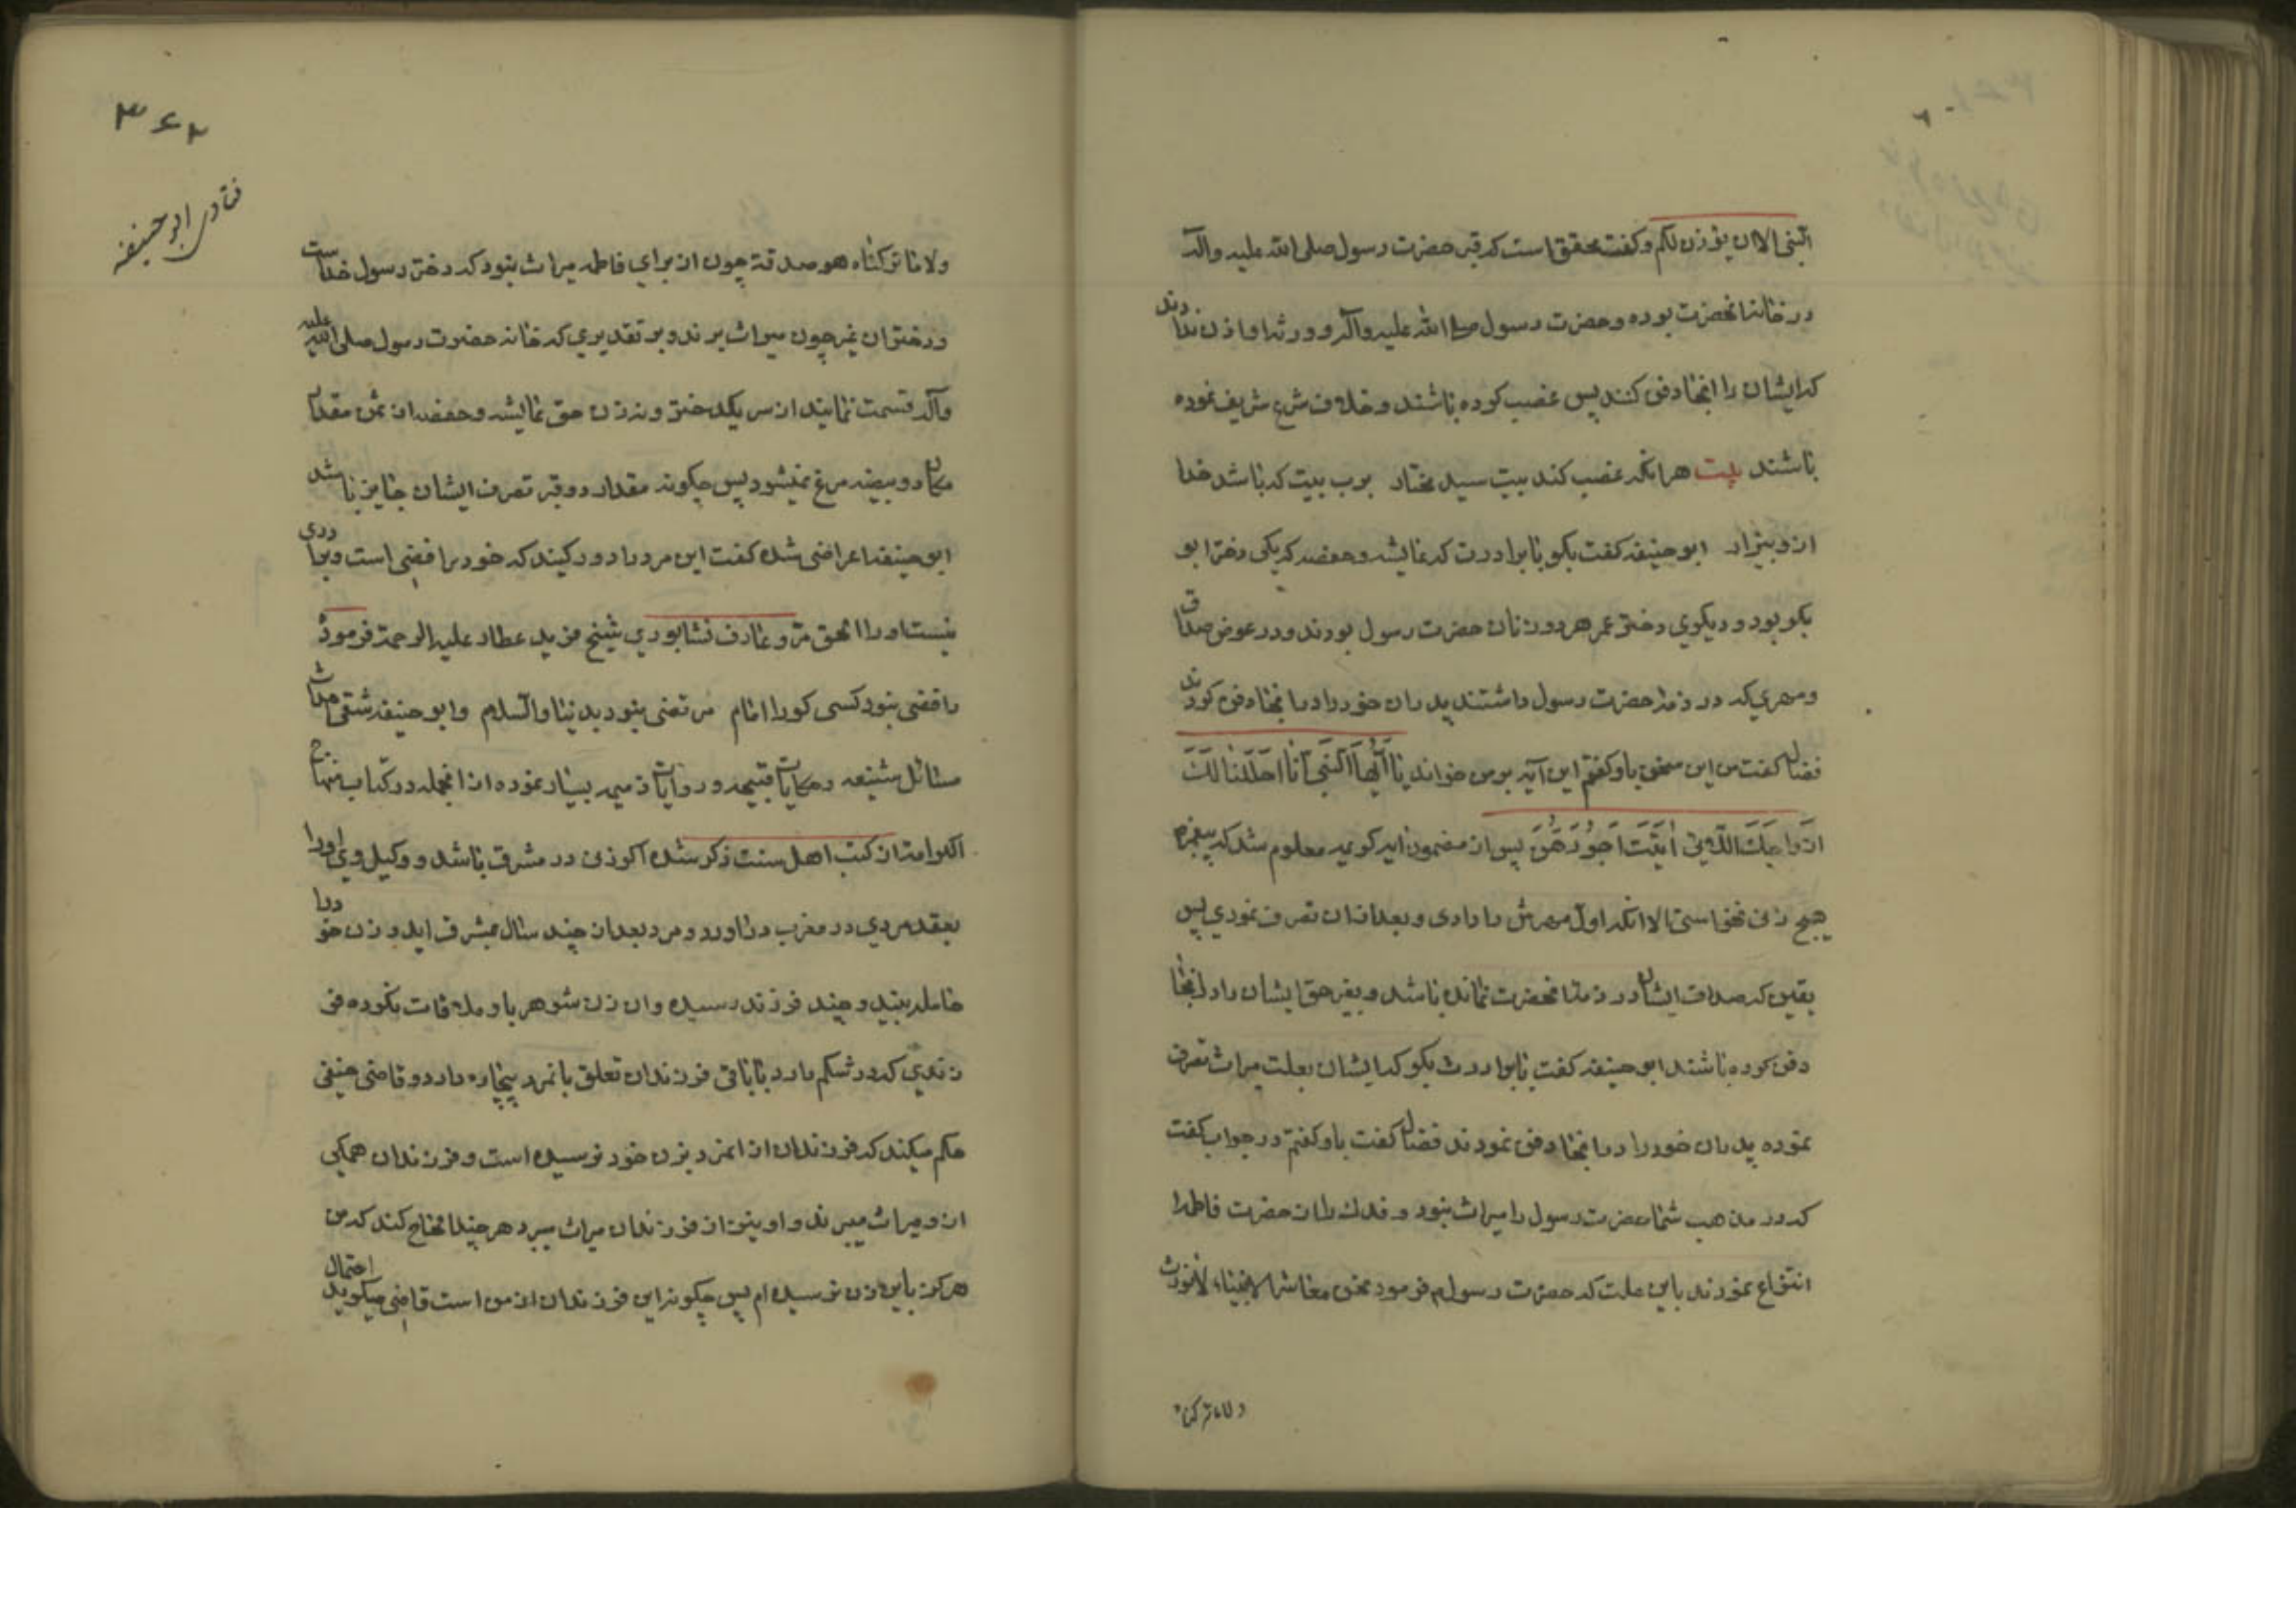 النبی الا ان یؤذن لکم و کفت محقق است که قبر حضرت رسول صلی الله علیه واله
در خانه انحضرت بوده و حضرت رسول صلی الله علیه واله و ورثه او اذن نداده اند
که ایشان را انجا دفن کنند پس غصب کرده باشند و خلاف شرع شریف نموده
باشند بیت هر انکه غصب کند بیت سید مختار برب بیت که باشد خدا
از و بیزار ابوحنیفه کفت بکو با برادرت که عایشه و حفصه که یکی دختر ابو
بکر بود و دیکری دختر عمر هر دو زنان حضرت رسول بودند و در عوض صداق
و مهری که در ذمه حضرت رسول داشتند پدران خود را در انجا دفن کردند
فضال کفت من این سخن باو کفتم این آیه بر من خواند یا ایها النبی انا احللنا لک
ازواجک اللاتی اتیت اجورهن پس از مضمون ایه کریمه معلوم شد که پیغمبر
هیچ زنی نخواستی الا انکه اول مهرش را دادی و بعد از ان تصرف نمودی پس
یقین که صداق ایشان در ذمه انحضرت نمانده باشد و بغیر حق ایشان را در انجا
دفن کرده باشند ابوحنیفه کفت با برادرت بکو که ایشان بعلت میراث تصرف
نموده پدران خود را در انجا دفن نمودند فضال کفت باو کفتم در جواب کفت
که در مذهب شما حضرت رسول را میراث نبود و فدک را از حضرت فاطمه
انتزاع نمودند باین علت که حضرت رسول فرمود نحن معاشر الانبیاء لا نورث
ولا ما ترکناه
۳۶۲
فتاوی ابوحنیفه
ولا ما ترکناه هو صدقة چون از برای فاطمه میراث نبود که دختر رسول خداست
دختران غیر چون میراث برند و بر تقدیری که خانه حضرت رسول صلی الله علیه
واله قسمت نمایند از سر یکدختر و نه زن حق عایشه و حفصه از ثمن مقدار
مکان دو بیضه مرغ نمیشود پس چکونه مقدار دو قبر تصرف ایشان جایز باشد
ابوحنیفه اعراضی شده کفت این مرد را دور کنید که خود رافضی است و برادری
نیست او را الحق مرد عارف نشابوری شیخ فرید عطار علیه الرحمة فرموده
رافضی نبود کسی کورا امام مرتضی بنود بدنیا والسلام و ابوحنیفه شقی احداث
مسائل شنیعه و حکایات قبیحه و روایات ذمیمه بسیار نموده از انجمله در کتاب منهاج
الکرامه از کتب اهل سنت ذکر شده اکر زنی در مشرق باشد و وکیل وی اورا
بعقد مردی در مغرب دراورد و مرد بعد از چند سال بمشرق اید و زن خود را
حامله بیند و چند فرزند رسیده و ان زن شوهر باو ملاقات نکرده فر
زندی که در شکم دارد با باقی فرزندان تعلق بانمرد بیچاره دارد و قاضی حنفی
حکم میکند که فرزندان از انمرد بزن خود نرسیده است و فرزندان همکی
از و میراث میبرند و او نیز از فرزندان میراث میبرد هر چند الحاح کند که من
هرکز باین زن نرسیده ام پس چکونه این فرزندان از من است قاضی میکوید احتمال